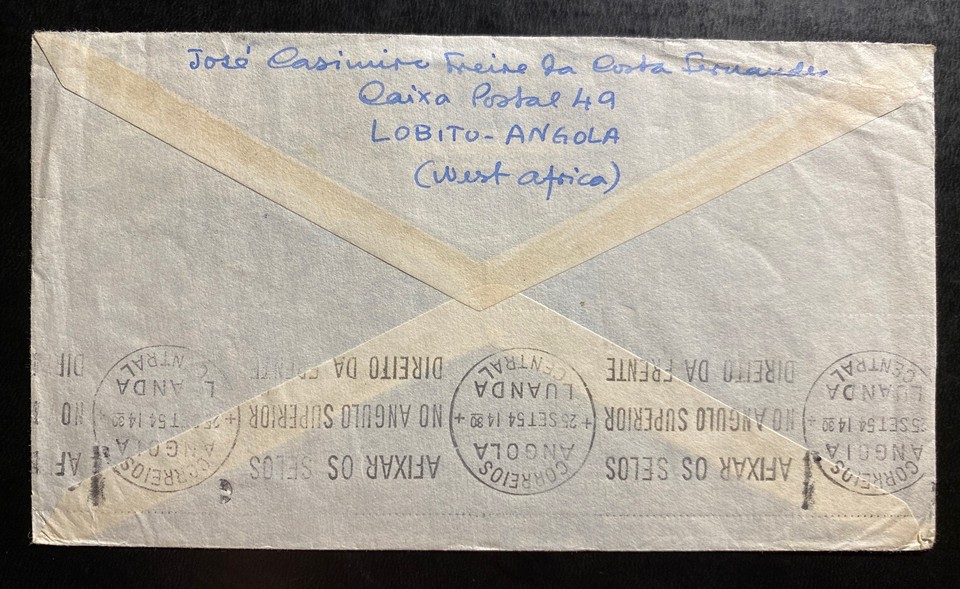 José Casimiro Freire da Costa Fernandes
Caixa Postal 49
LOBITO-ANGOLA
(West Africa)
CORREIOS ANGOLA
25 SET 54 14 30
LUANDA CENTRAL
AFIXAR OS SELOS
NO ANGULO SUPERIOR
DIREITO DA FRENTE
CORREIOS ANGOLA
+ 25 SET 54 14 30 +
LUANDA CENTRAL
AFIXAR OS SELOS
NO ANGULO SUPERIOR
DIREITO DA FRENTE
CORREIOS ANGOLA
25 SET 54 14 30 +
LUANDA CENTRAL
AF
NO
DIR